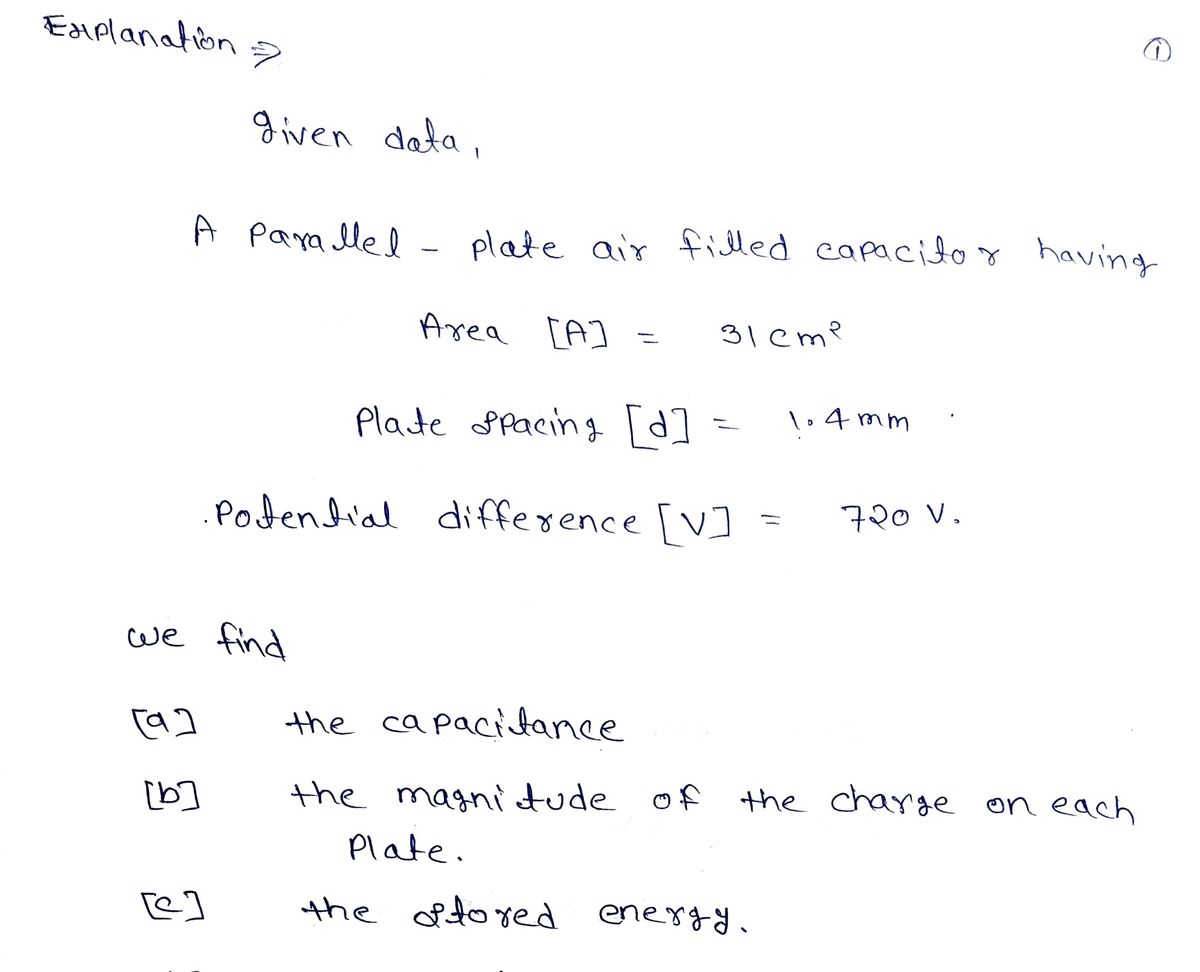 Explanation ⇒
①
given data,
A parallel - plate air filled capacitor having
Area [A] = 31 cm²
Plate spacing [d] = 1.4 mm .
.Potential difference [V] = 720 V.
we find
[a] the capacitance
[b] the magnitude of the charge on each
Plate.
[c] the stored energy.